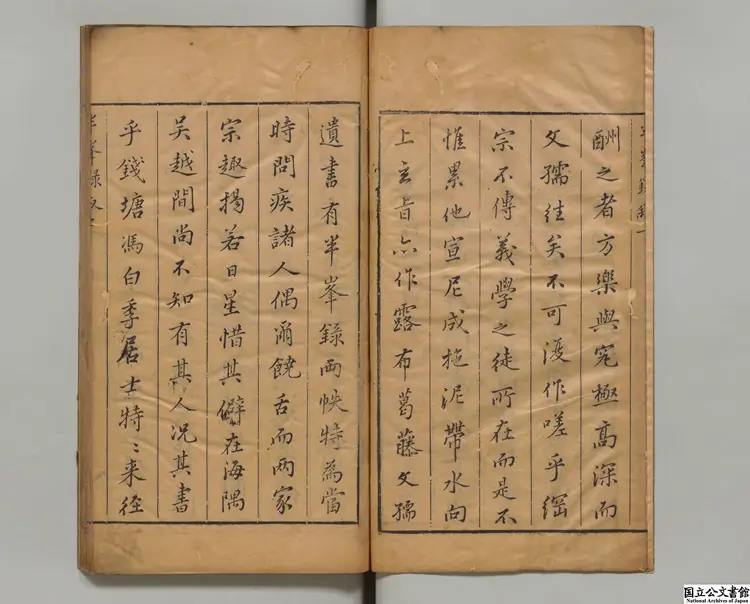 酬之者方樂與究極高深而
文孺往矣不可復作嗟乎綱
宗不傳義學之徒所在而是不
惟累他宣尼成拖泥帶水向
上玄旨亦作露布葛藤文孺
遺書有半峯錄兩帙特為當
時問疾諸人偶爾饒舌而兩家
宗趣揭若日星惜其僻在海隅
吳越間尚不知有其人况其書
乎錢塘馮白季居士特〻来径
半峯錄
国立公文書館
National Archives of Japan